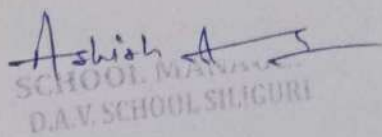 Ashish
SCHOOL
D.A.V. SCHOOL SILIGURI